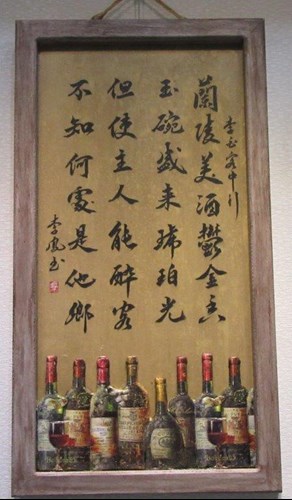 蘭陵美酒鬱金香
李白客中行
玉碗盛来琥珀光
但使主人能醉客
不知何處是他鄉
李鳳玉